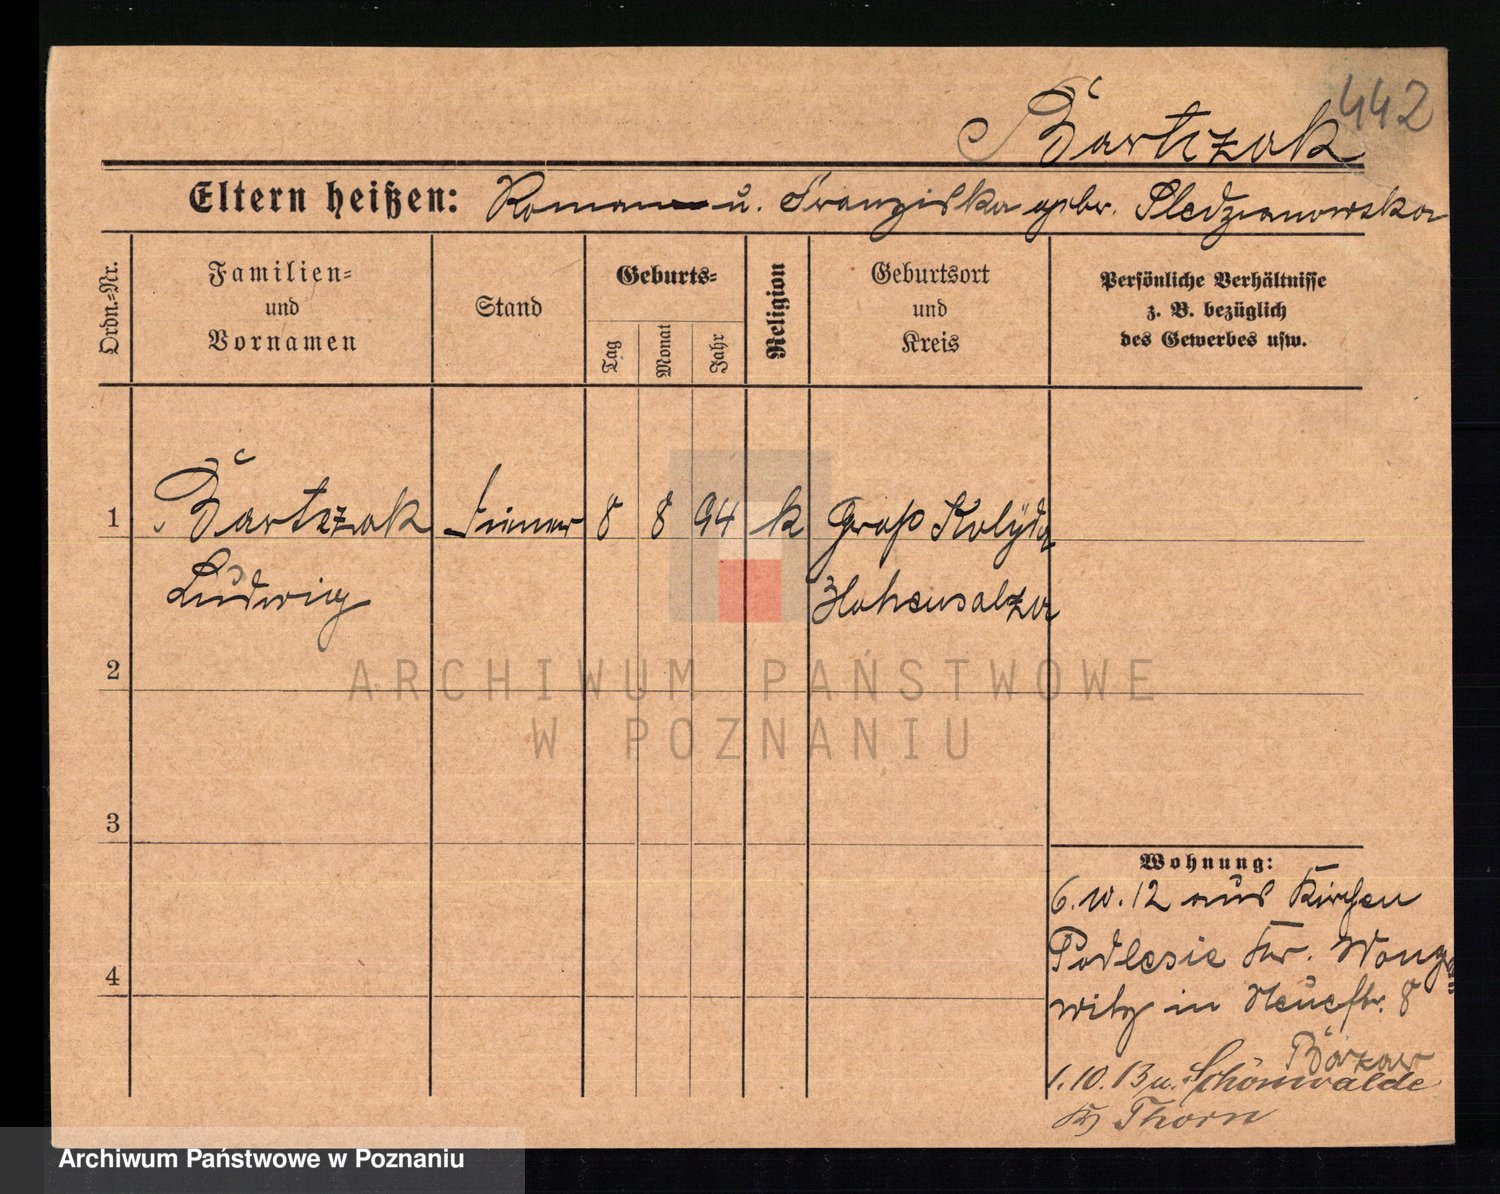 442
Bartczak
Eltern heißen: Roman u. Franziska gebr. Sledzianowska
Ordn.-Nr.
Familien-
und
Vornamen
Stand
Geburts-
Tag
Monat
Jahr
Religion
Geburtsort
und
Kreis
Persönliche Verhältnisse
z. B. bezüglich
des Gewerbes usw.
1 Bartczak Diener 8 8 94 k Groß Kolуda
Ludwig Hohensalza
2
3
4
Wohnung:
6.10.12 aus Kirchen
Podlesie Kr. Wongro
witz in Neuestr. 8
Bäzar
1.10.13 n. Schönwalde
Kr Thorn
ARCHIWUM PAŃSTWOWE
W POZNANIU
Archiwum Państwowe w Poznaniu